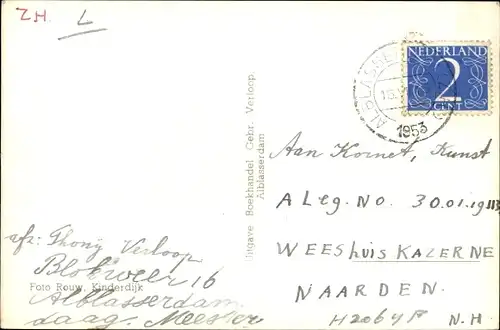 ZH.
L
NEDERLAND
2
CENT
ALBLASSE
1953
Uitgave Boekhandel Gebr. Verloop.
Alblasserdam
Aan Kornet, Kunst
ALeg. No. 30.01.19
WEEShuis KAZERNE
NAARDEN.
N.H.
afz: Thony Verloop
Blokweer 16
Foto Rouw, Kinderdijk
Alblasserdam